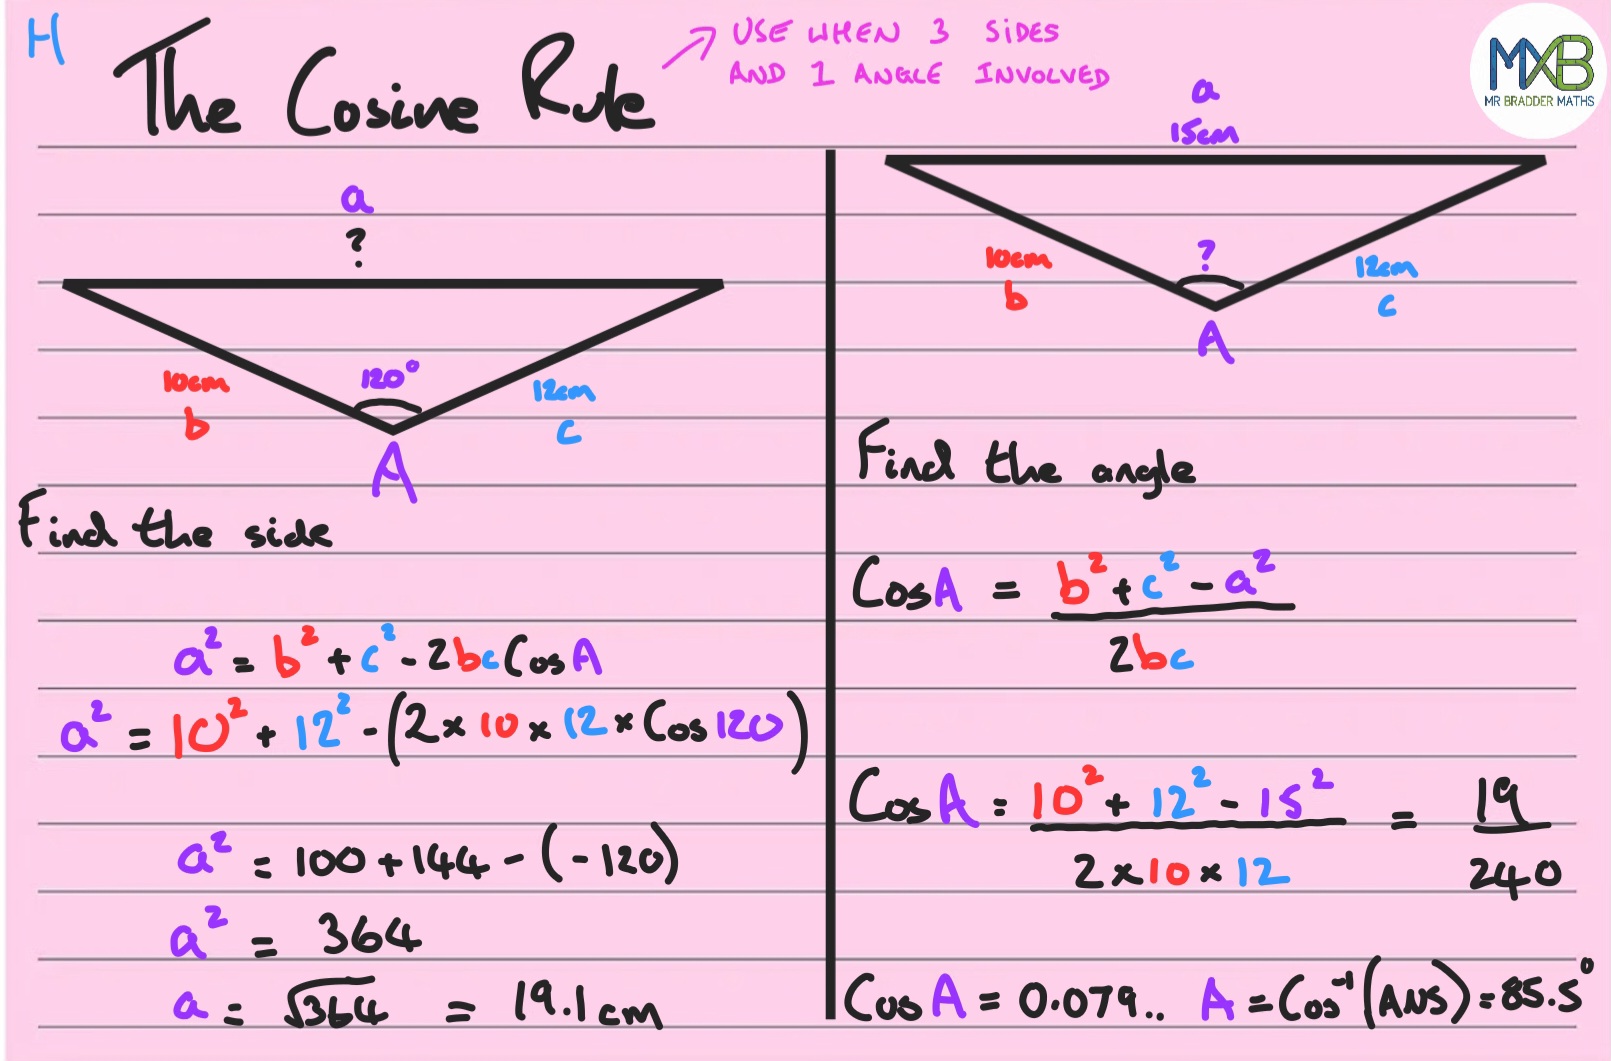 H
The Cosine Rule
USE WHEN 3 SIDES
AND 1 ANGLE INVOLVED
MXB
MR BRADDER MATHS
a
?
10cm
b
120°
12cm
c
A
Find the side
a² = b² + c² - 2bc Cos A
a² = 10² + 12² - (2 × 10 × 12 × Cos 120)
a² = 100 + 144 - (-120)
a² = 364
a = √364 = 19.1cm
a
15cm
10cm
b
?
12cm
c
A
Find the angle
Cos A = b² + c² - a²
2bc
Cos A = 10² + 12² - 15² = 19
2 × 10 × 12 240
Cos A = 0.079.. A = Cos⁻¹(ANS) = 85.5°